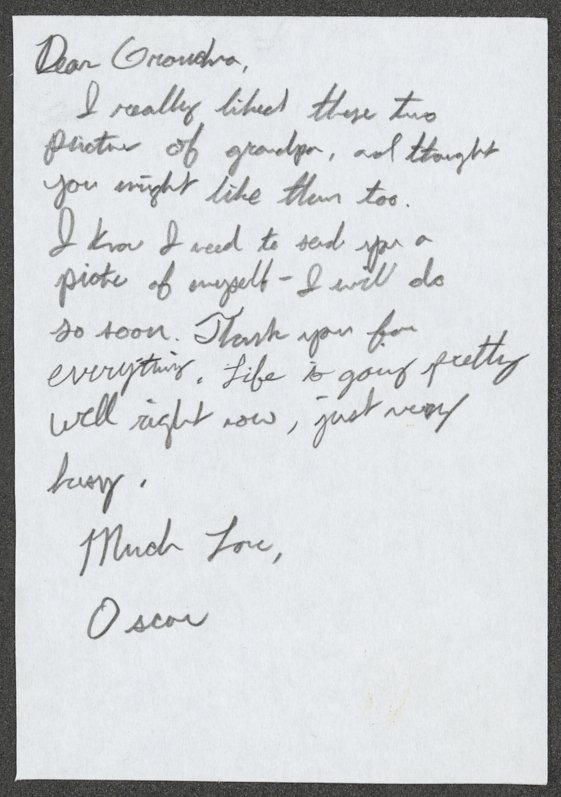 Dear Grandma,
I really liked these two
picture of grandpa, and thought
you might like them too.
I know I need to send you a
picture of myself – I will do
so soon. Thank you for
everything. Life is going pretty
well right now, just very
busy.
Much Love,
Oscar